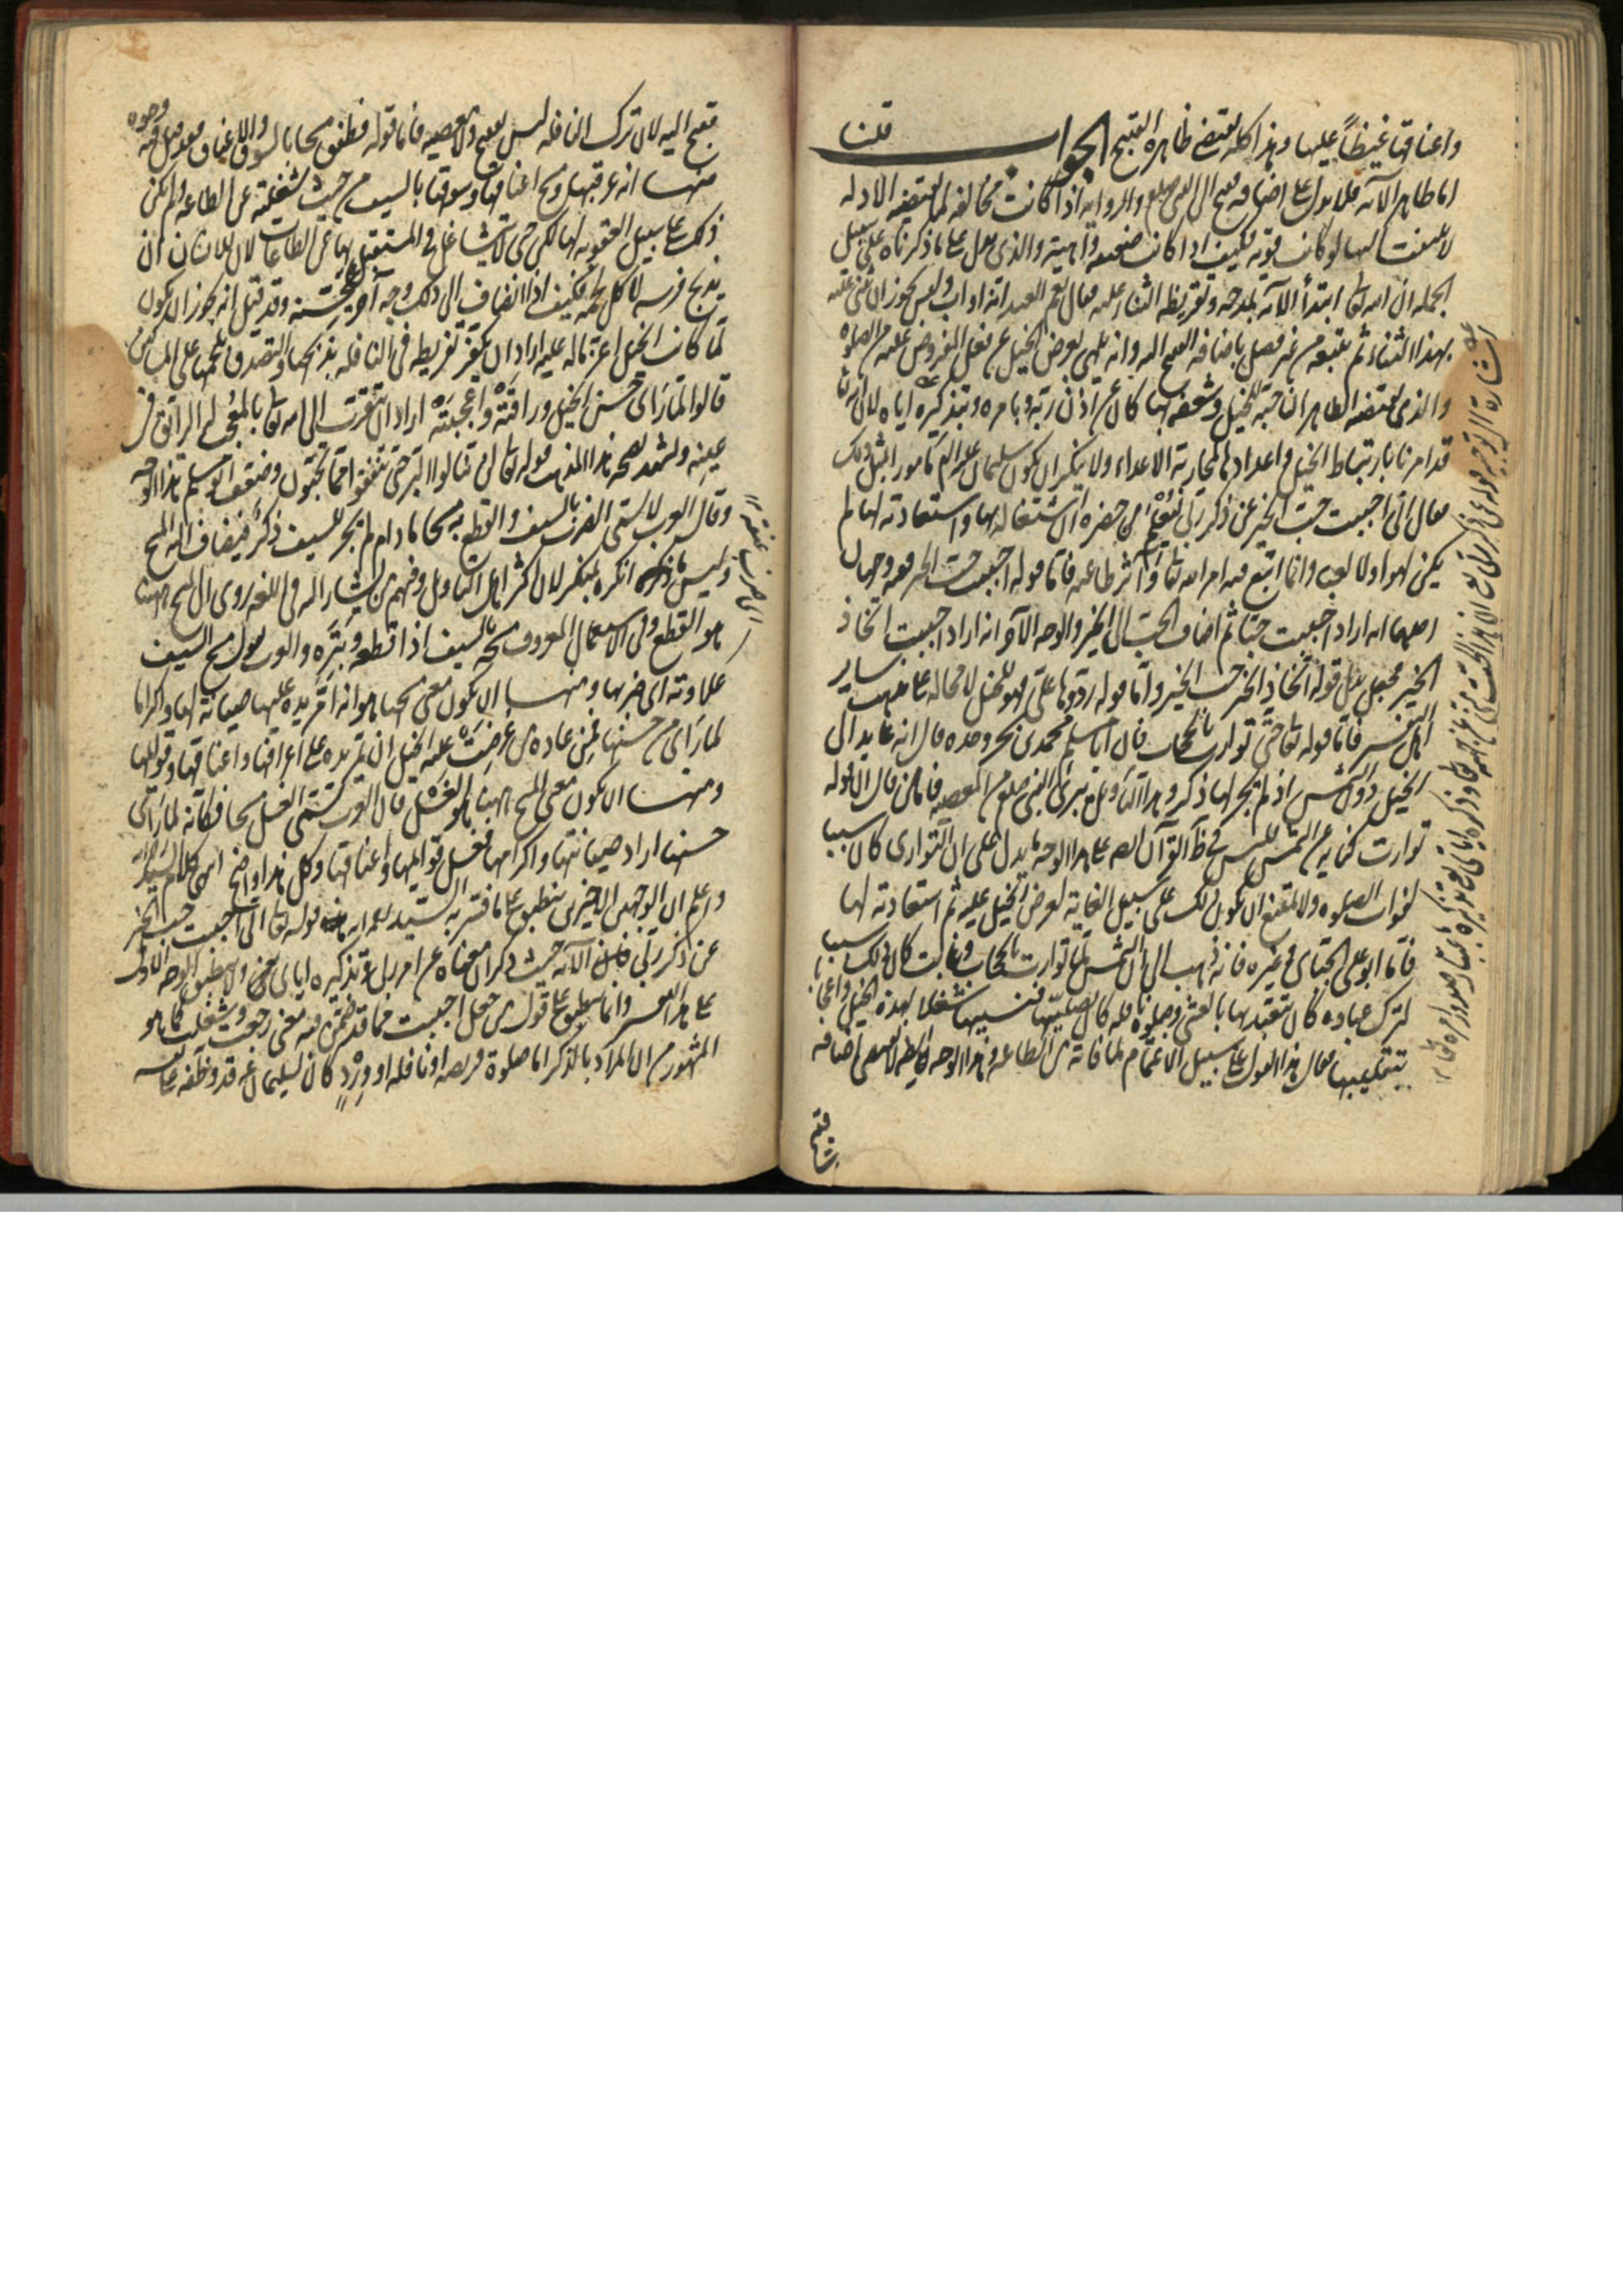 واعناقها غيظاً عليها وهذا كله يقتضى ظاهره القبيح الجواب قلنا
اما ظاهر الآية فلا يدل على اضافه قبيح الى النبى صلعم والروايه اذا كانت مخالفه لما يقتضيه الادله
لا يلتفت اليها لو كانت قويه فكيف اذا كانت ضعيفه واهية والذى يدل على ما ذكرناه على سبيل
الجملة ان الله تعا ابتدأ الآية بمدحه وتقريظه والثناء عليه فقال نعم العبد انه اواب وليس يجوز ان يثنى عليه
بهذا الثناء ثم يتبعه من غير فصل باضافه القبيح اليه وانه تلهى بعرض الخيل عن فعل المفروض عليه من الصلوة
والذى يقتضيه الظاهر ان حبّه للخيل وشغفه بها كان عن اذن ربّه وبامره وبتذكيره اياه لان الله تعا
قد امرنا بارتباط الخيل واعدادها لمحاربة الاعداء ولا ينكر ان يكون سليمان عليه السلم مأمورا بمثل ذلك
فقال انى احببت حبّ الخير عن ذكر ربّى ليُعْلِم من حضره ان اشتغاله بها واستعداده لها لم
يكن لهوا ولا لعبا وانما اتبع فيه امر الله تعا وآثر طاعته فاما قوله احببت حبّ الخير ففيه وجهان
احدهما انه اراد احببت حبّا ثم اضاف الحبّ الى الخير والوجه الآخر انه اراد احببت اتخاذ
الخير فجعل بدل قوله اتّخاذ الخير حب الخير وامّا قوله ردّوها علىّ فهو للخيل لا محاله على مذهب ساير
اهل التفسير فاما قوله تعا حتّى توارت بالحجاب فان ابا مسلم محمد بن بحر وحده قال انه عايد الى
الخيل دون الشمس اذ لم يجر لها ذكر وهذا التأويل يبرئ النبى صلعم من المعصيه فاما من قال ان قوله
توارت كناية عن الشمس فليس فى ظ القرآن ايضا على هذا الوجه ما يدل على ان التوارى كان سبب
لفوات الصلوه ولا يمتنع ان يكون ذلك على سبيل الغاية لعرض الخيل عليه ثم استعادته لها
فاما ابو على الجبّاى وغيره فانه ذهب الى ان الشمس لمّا توارت بالحجاب وغابت كان ذلك سبب
لترك عباده كان يتعبّد بها بالعشى وصلوة نافله كان يصليها فنسيها شغلا بهذه الخيل واعجابا
بتقليبها فقال هذا القول على سبيل الاغتمام لما فاته من الطاعه وهذا الوجه ايضا لا يقتضى اضافه
قبيح اليه لان ترك النافله ليس بقبيح ولا معصيه فاما قوله فطفق مسحا بالسوق والاعناق فقد قيل فيه وجوه
منها انه عرقبها ومسح اعناقها وسوقها بالسيف من حيث شغلته عن الطاعه ولم يكن
ذلك على سبيل العقوبه لها لكن حتى لا يتشاغل فى المستقبل بها عن الطاعات لان للانسان ان
يذبح فرسه لاكل لحمه فكيف اذا انضاف الى ذلك وجه آخر يحسّنه وقد قيل انه يجوز ان يكون
لمّا كانت الخيل اعزّ ماله عليه اراد ان يكفّر تفريطه فى النافله بذبحها والتصدق بلحمها على المساكين
قالوا لمّا رأى حسن الخيل وراقته واعجبته اراد ان يتقرّب الى الله تعا بالمعجب له الرائق فى
عينه ويشهد بصحه هذا المذهب قوله تعا لن تنالوا البر حتى تنفقوا ممّا تحبّون وضعّف ابو مسلم هذا الوجه
وقال العرب لا تسمّى الضرب بالسيف والقطع به مسحا ما دام لم يجر للسيف ذكر فيضاف اليه المسح
وليس ما انكره بمنكر لان اكثر اهل التأويل وفيهم من يشار اليه فى اللغه روى ان المسح ههنا
هو القطع وفى الاستعمال المعروف مسحه بالسيف اذا قطعه وبتره والعرب تقول مسح السيف
علاوته اى ضربها ومنها ان يكون معنى مسحها هو انه امرّ يده عليها صيانة لها واكراما
لما رأى من حسنها فمن عاده من عرضت عليه الخيل ان يمرّ يده على اعرافها واعناقها وقوائمها
ومنها ان يكون معنى المسح ههنا هو الغسل فان العرب تسمّى الغسل مسحا فكانه لما رأى
حسنها اراد صيانتها واكرامها فغسل قوائمها واعناقها وكل هذا واضح انتهى كلام السيد
واعلم ان الوجهين الاخيرين ينطبق على ما فسّر به السيد قوله تعا انى احببت حب الخير
عن ذكر ربّى حيث ذكر ان معناه عن امر ربى وتذكيره اياى ولا ينطبق الوجه الاول
على هذا التفسير وانما ينطبق على قول من جعل احببت مما قد ضمّن فيه معنى وشغلت كما هو
المشهور من ان المراد بالذكر اما صلوة فريضه او نافله او وِرْدٍ كان لسليمان
اى ضرب عنقه